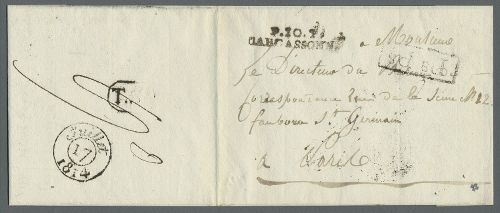 P.10.P.
CARCASSONNE
a Monsieur
le Directeur du
correspondance de la Seine N. 12
faubourg St. Germain
a Paris
T.
Juillet
17
1814